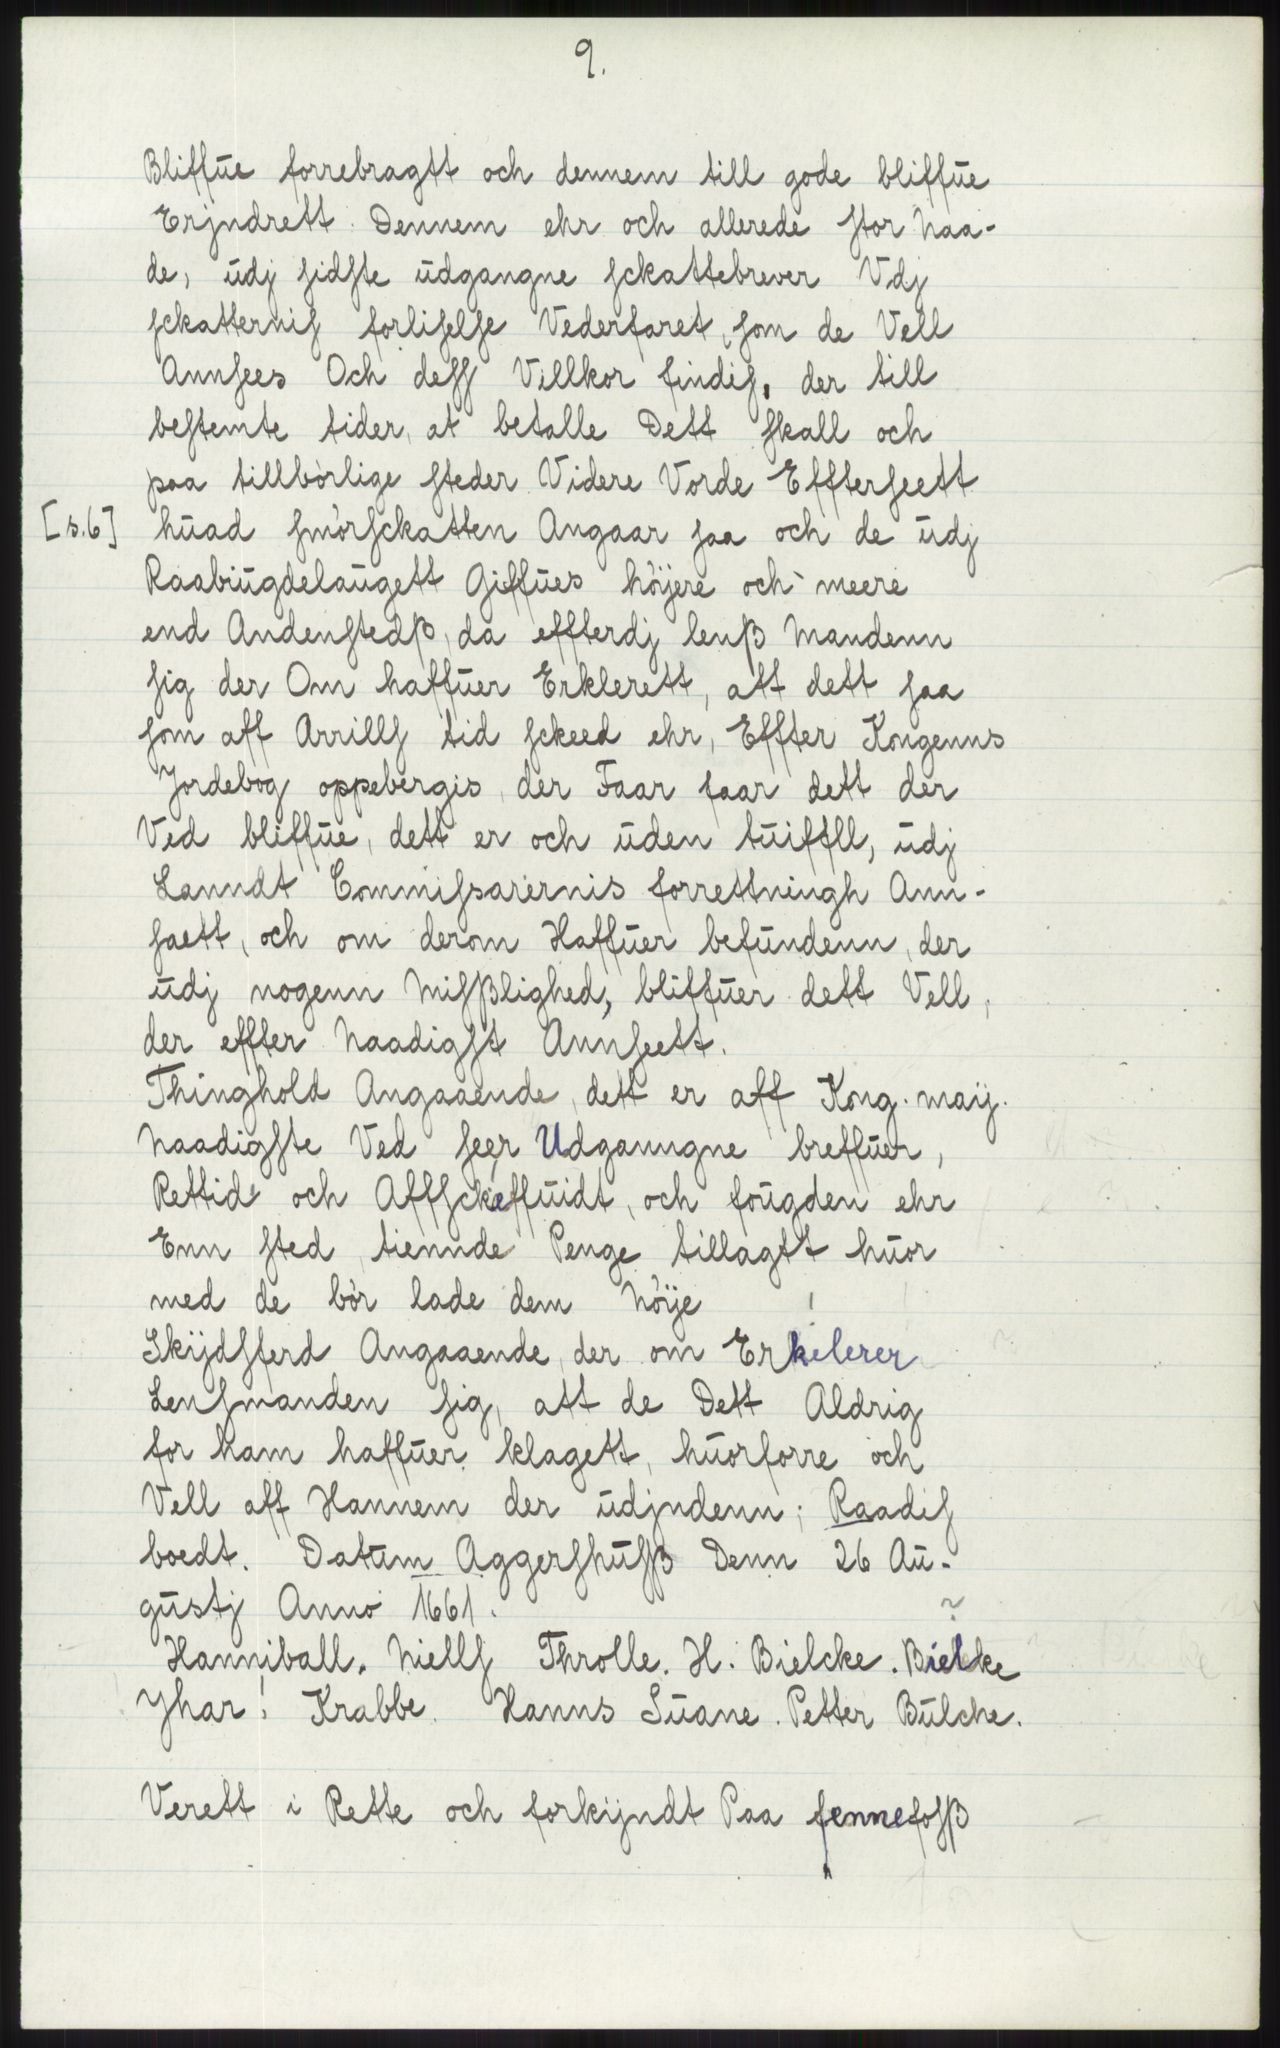 9.
Bliffue forrebragtt och dennem till gode bliffue
Erjndrett. Dennem ehr och allerede stor naa-
de, udj sidste udgangne sckattebrever Vdj
sckatternis forliselse Vederfaret, som de Vell
Annsees Och dess Villkor findis, der till
bestemte tider, at betalle Dett skall och
paa tillbòrlige steder Videre Vorde Efftterseett
[s.6] huad smòrsckatten Angaar saa och de udj
Raabiugdelaugett Giffues hòyere och meere
end Andenstedß, da effterdj lenß Mandenn
sig der Om haffuer Erklerett, att dett saa
som aff Arrills tid sckeed ehr, Effter Kongenns
Jordebog oppebergis, der Faar faar dett der
Ved bliffue, dett er och uden tuiffll, udj
Lanndt Commissariernis forrettningh Ann-
saett, och om derom Haffuer befundenn, der
udj nogenn Misßlighed, bliffuer dett Vell,
der effter Naadigst Annseett.
Thinghold Angaaende, dett er aff Kong. maij.
Naadigste Ved seer Udganngne breffuer,
Rettide och Affsckeffuidt, och fougden ehr
Enn sted tiennde Penge tillagtt huor
med de bòr lade dem Nòije !
Skijdsferd Angaaende, der om Erkelerer
Lensmanden sig, att de Dett Aldrig
for ham haffuer klagett, huorforre och
Vell aff Hannem der udjndenn; Raadis
boedt. Datum Aggershusß Denn 26 Au-
gustj Anno 1661. ?
Hanniball. Niells Throlle. H. Bielcke. Bielke
Jhar! Krabbe. Hanns Suane. Petter Bulche.
Verett i Rette och forkijndt Paa fennefosß